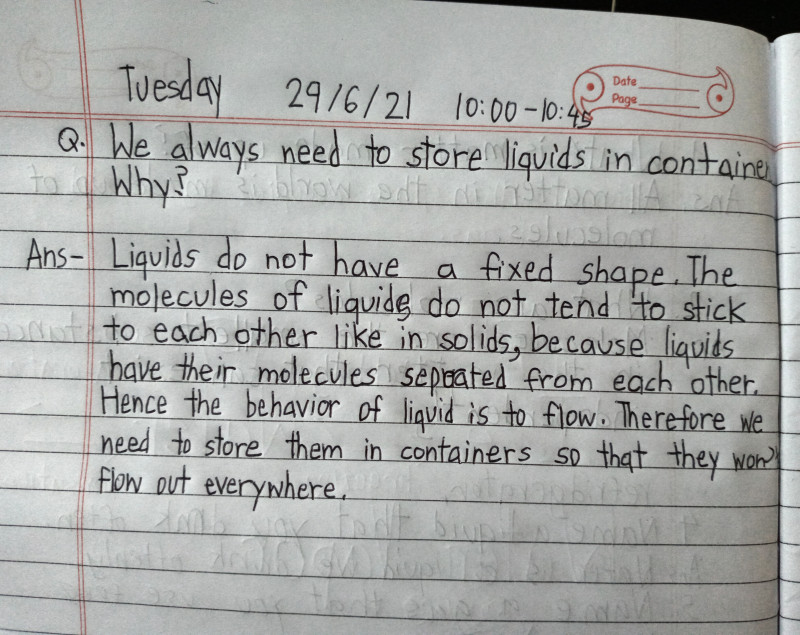 Tuesday 29/6/21 10:00-10:45
Date
Page
Q. We always need to store liquids in container
Why?
Ans- Liquids do not have a fixed shape. The
molecules of liquids do not tend to stick
to each other like in solids, because liquids
have their molecules seprated from each other.
Hence the behavior of liquid is to flow. Therefore we
need to store them in containers so that they won'
flow out everywhere.